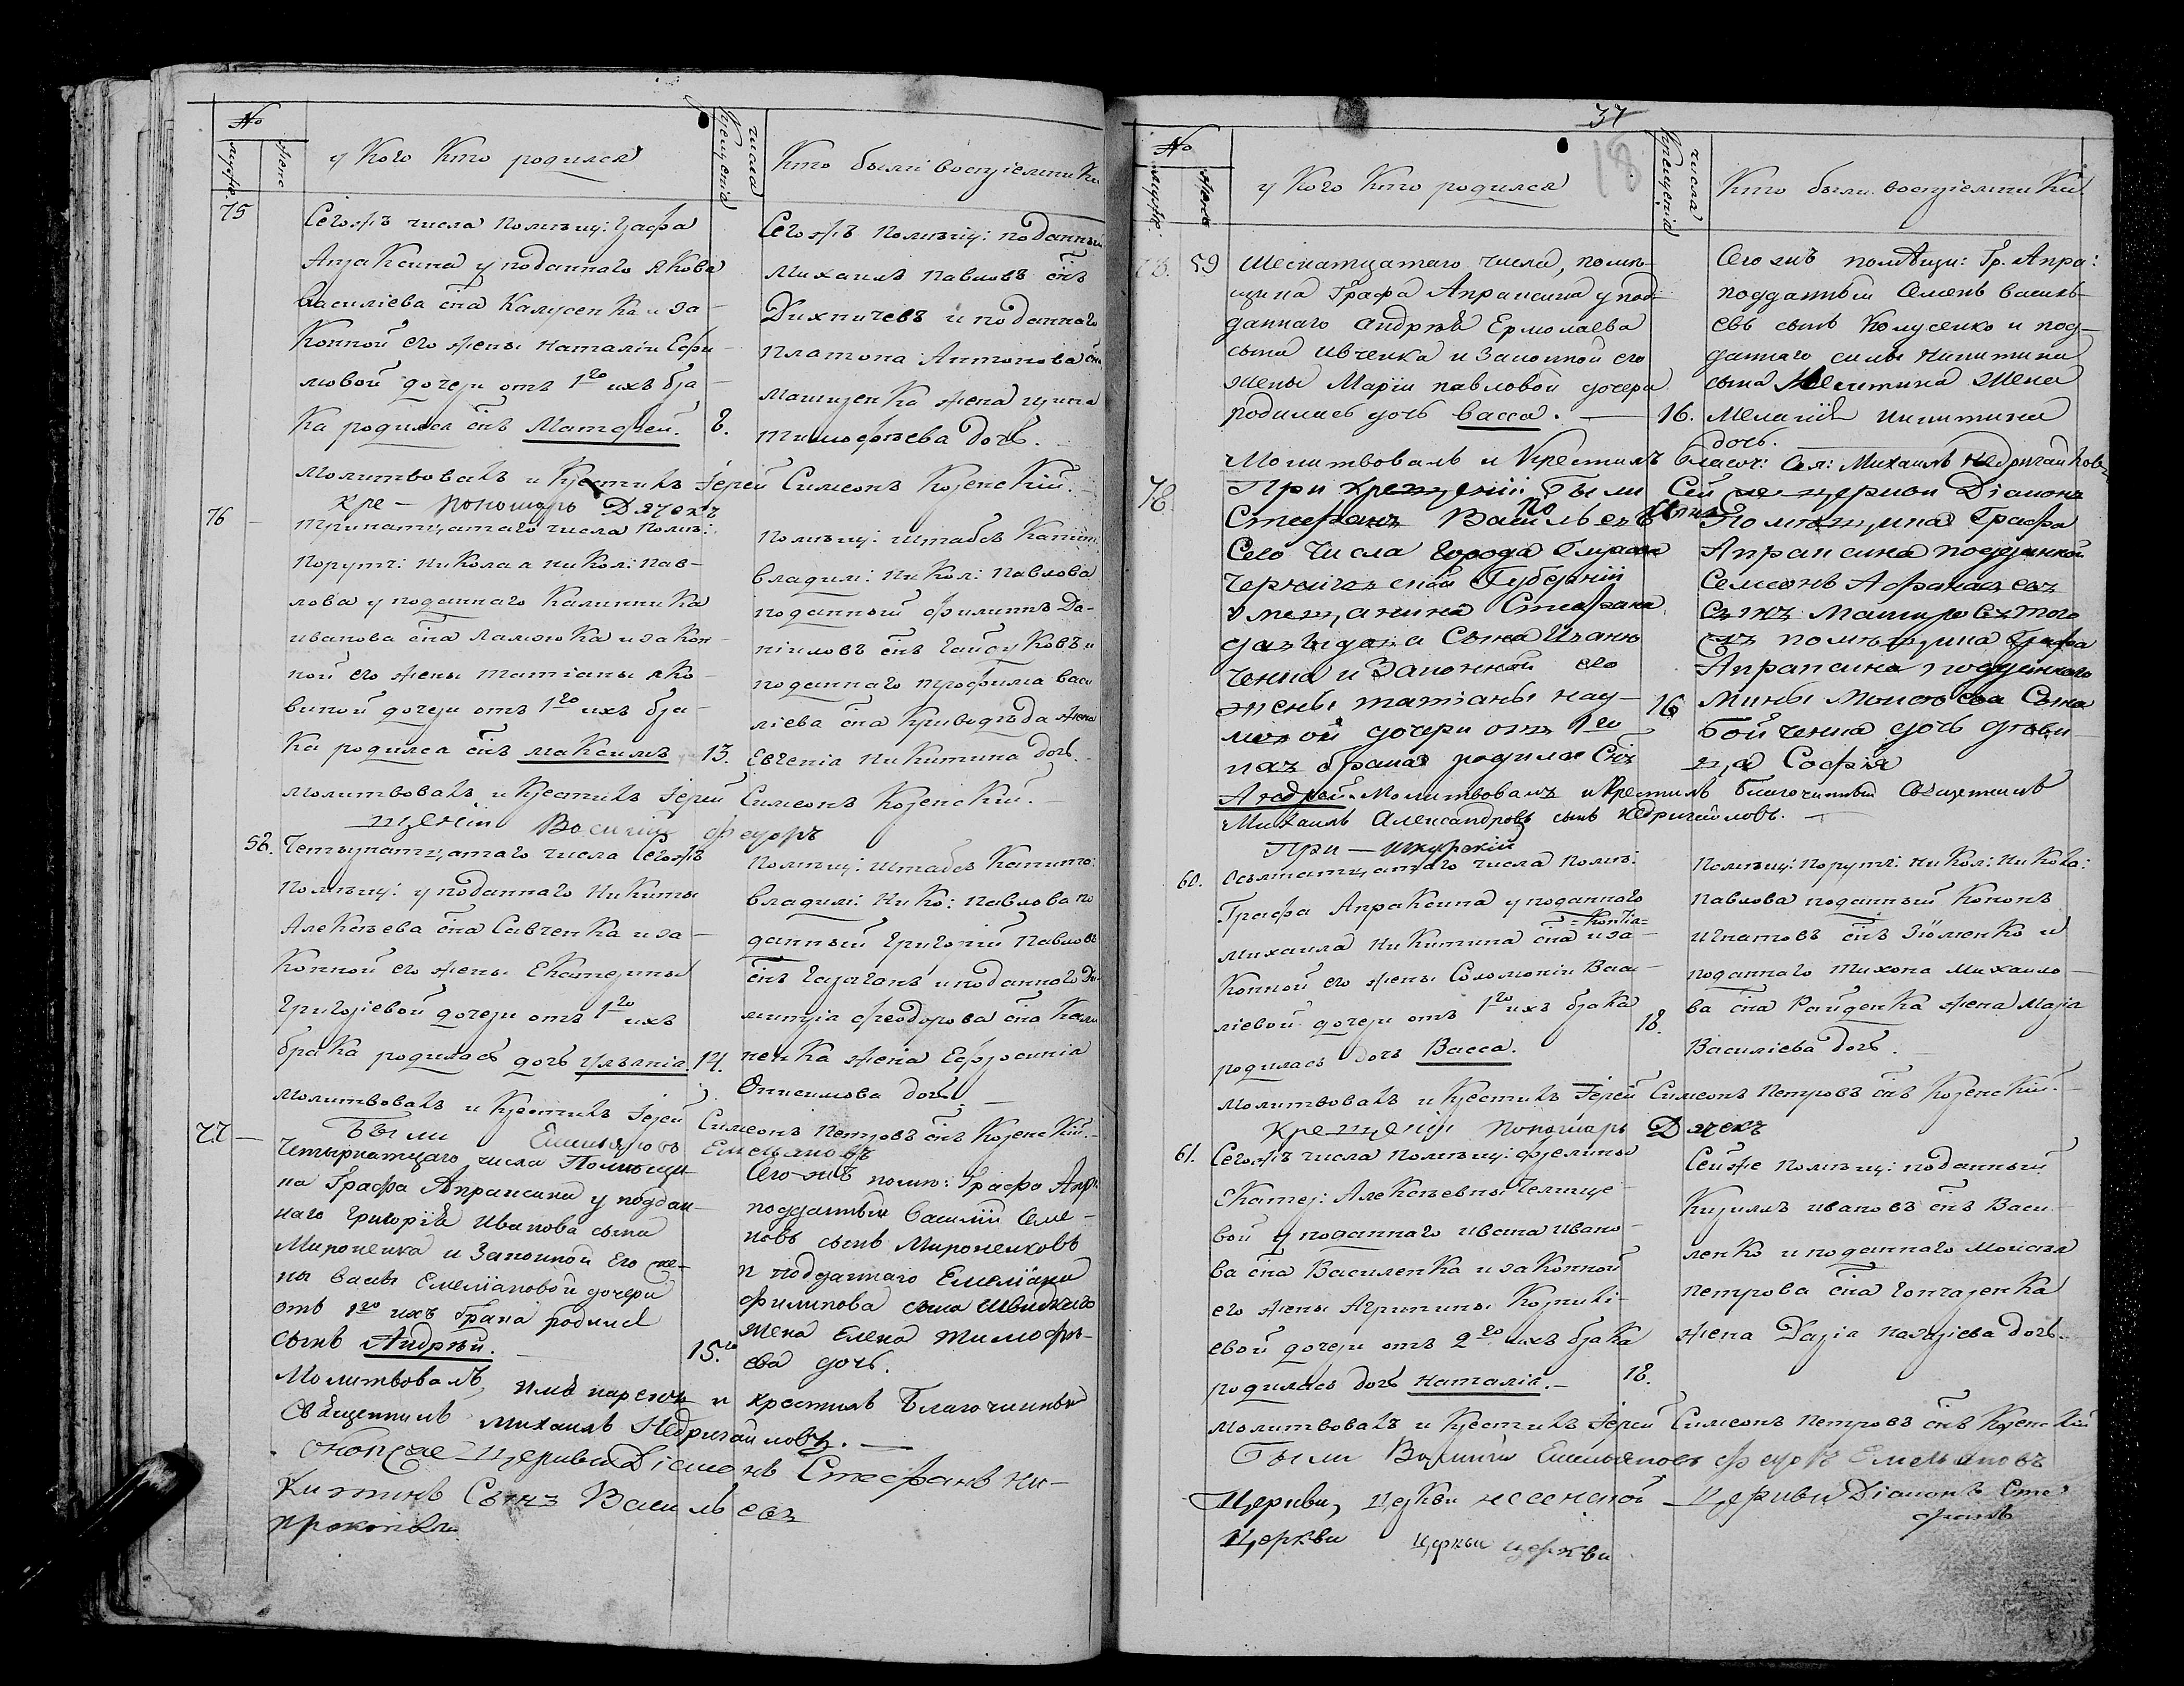 №
мужес: женс
у Кого Кто родился
числа Крещенія
Кто были воспріемники
75
Сегожъ числа Помѣщ: Графа
Апраксина у поданного Якова
Василіева сна Калусенка и за-
Конной его жены Наталіи Ефи-
мовой дочери отъ 1го ихъ бра-
Ка родился снъ Матфей. 8.
Сегожъ помѣщ: поданный
Михаилъ Павловъ снъ
Дихничевъ и поданного
Платона Антонова сна
жена
Тимофѣева дочь.
Молитвовалъ и Крестилъ Іерей Симеонъ Козенскій.
кре- Пономарь Дячекъ
76
Тринатцатаго числа Помѣ:
Порут: Николая Никол: Пав-
лова у поданнаго Калинника
Иванова сна Ламонка и закон-
ной его жены Татіаны Яко-
виной дочери отъ 1го ихъ бра-
Ка родился снъ Максимъ 13.
Помѣщ: Штабсъ Капит:
Владим: Никол: Павлова
поданный Филиппъ Да-
ніиловъ снъ и
поданнаго Трофима Васи
ліева сна жена
Евгенія Никитина дочь.
Молитвовалъ и Крестилъ Іерей Симеонъ Козенскій.
щеніи Василій Федоръ
58.
Четырнатцатаго числа Сегожъ
Помѣщ: у поданнаго Никиты
Алексѣева сна Савченка и за-
Конной его жены Екатерины
Григоріевой дочери отъ 1го ихъ
брака родилась дочь Уліанія. 14.
Помѣщ: Штабсъ Капита:
Владим: Нико: Павлова по
данный Григорій Павловъ
снъ Гараганъ и поданного Ди
митрія Феодорова сна
ненка жена Ефросинія
Онисимова дочь.
Молитвовалъ и Крестилъ Іерей Симеонъ Петровъ снъ Козенскій.
Были Емельяновъ Емельяновъ
77
Четырнатцаго числа Помѣщи-
на Графа Апраксина у поддан-
наго Григорія Иванова сына
Мироненка и Законной его же-
ны Васы Емеліановой дочери
отъ 1го ихъ брака родился
сынъ Андрѣй. 15.го
Сегожъ помѣ: Графа Апр:
подданный Василій Семе-
новъ сынъ Мироненковъ
и подданнаго Емеліана
Филипова сына Швидкаго
жена Елена Тимофѣ-
ева дочь.
Молитвовалъ, имя нарекъ и крестилъ Благочинный
Священникъ Михаилъ Недригайловъ.
Онойже Церкви Діаконъ Стефанъ Ни-
китинъ Сынъ Васильевъ

37
18
№
мужес: женс
у Кого Кто родился
числа Крещенія
Кто были воспріемники
59
Шеснатцатаго числа, помѣ-
щика Графа Апраксина у под-
даннаго Андрѣя Ермолаева
сына Ивченка и Законной его
жены Маріи Павловой дочери
родилась дочь Васса. 16.
Сегожъ помѣщи: Гр. Апра:
подданный Семенъ Василь-
евъ сынъ Колусенко и под-
даннаго Силы Никитина
сына жена
Мелагія Никитина
дочь.
Молитвовалъ и Крестилъ Благоч: Свя: Михаилъ Недригайловъ
78
При крещеніи Были Сей же церкви Діаконъ
Стефанъ Васильевъ
Сего Числа Города
Черниговской Губерніи
у мещанина Стефана
Сына Иваню
ченка и Законной его
жены Татіаны Нау-
мовой дочери отъ 1го
ихъ брака родился Снъ
Андрей. 16
Помѣщика Графа
Апраксина подданной
Семіонъ Афанасевъ
Сынъ того
жъ помѣщика Графа
Апраксина подданого
Мины Моисѣева Сына
Бойченка дочь дѣви-
ца Софія
Молитвовалъ и Крестилъ Благочинный Священникъ
Михаилъ Александровъ сынъ Недригайловъ.
При-
60.
Осьмнатцатаго числа Помѣ:
Графа Апраксина у поданнаго
Михаила Никитина сна и за-
Конной его жены Соломоніи Васи-
ліевой дочери отъ 1го ихъ брака
родилась дочь Васса. 18.
Помѣщ: Порутч: Никол: Никола:
Павлова поданный Кононъ
Игнатовъ снъ Зюменко и
поданнаго Тихона Михаило-
ва сна Райденка жена Марія
Василіева дочь.
Молитвовалъ и Крестилъ Іерей Симеонъ Петровъ снъ Козенскій.
Крещеніи Пономарь Дячекъ
61.
Сегожъ числа Помѣщ:
Екатер: Алексѣевны
вой у поданнаго Ивана Ивано-
ва сна Василенка и законной
его жены Агрипины Корнилі-
евой дочери отъ 2го ихъ брака
родилась дочь Наталія. 18.
Сейже Помѣщ: поданный
Кирилъ Ивановъ снъ Васи-
ленко и поданнаго Моисея
Петрова сна Гончаренка
жена Дарія Назаріева дочь.
Молитвовалъ и Крестилъ Іерей Симеонъ Петровъ снъ Козенскій
Были Василій Емельяновъ Федоръ Емельяновъ
Церкви, Церкви Церкви Діаконъ Сте-
фанъ
Церкви Церкви церкви